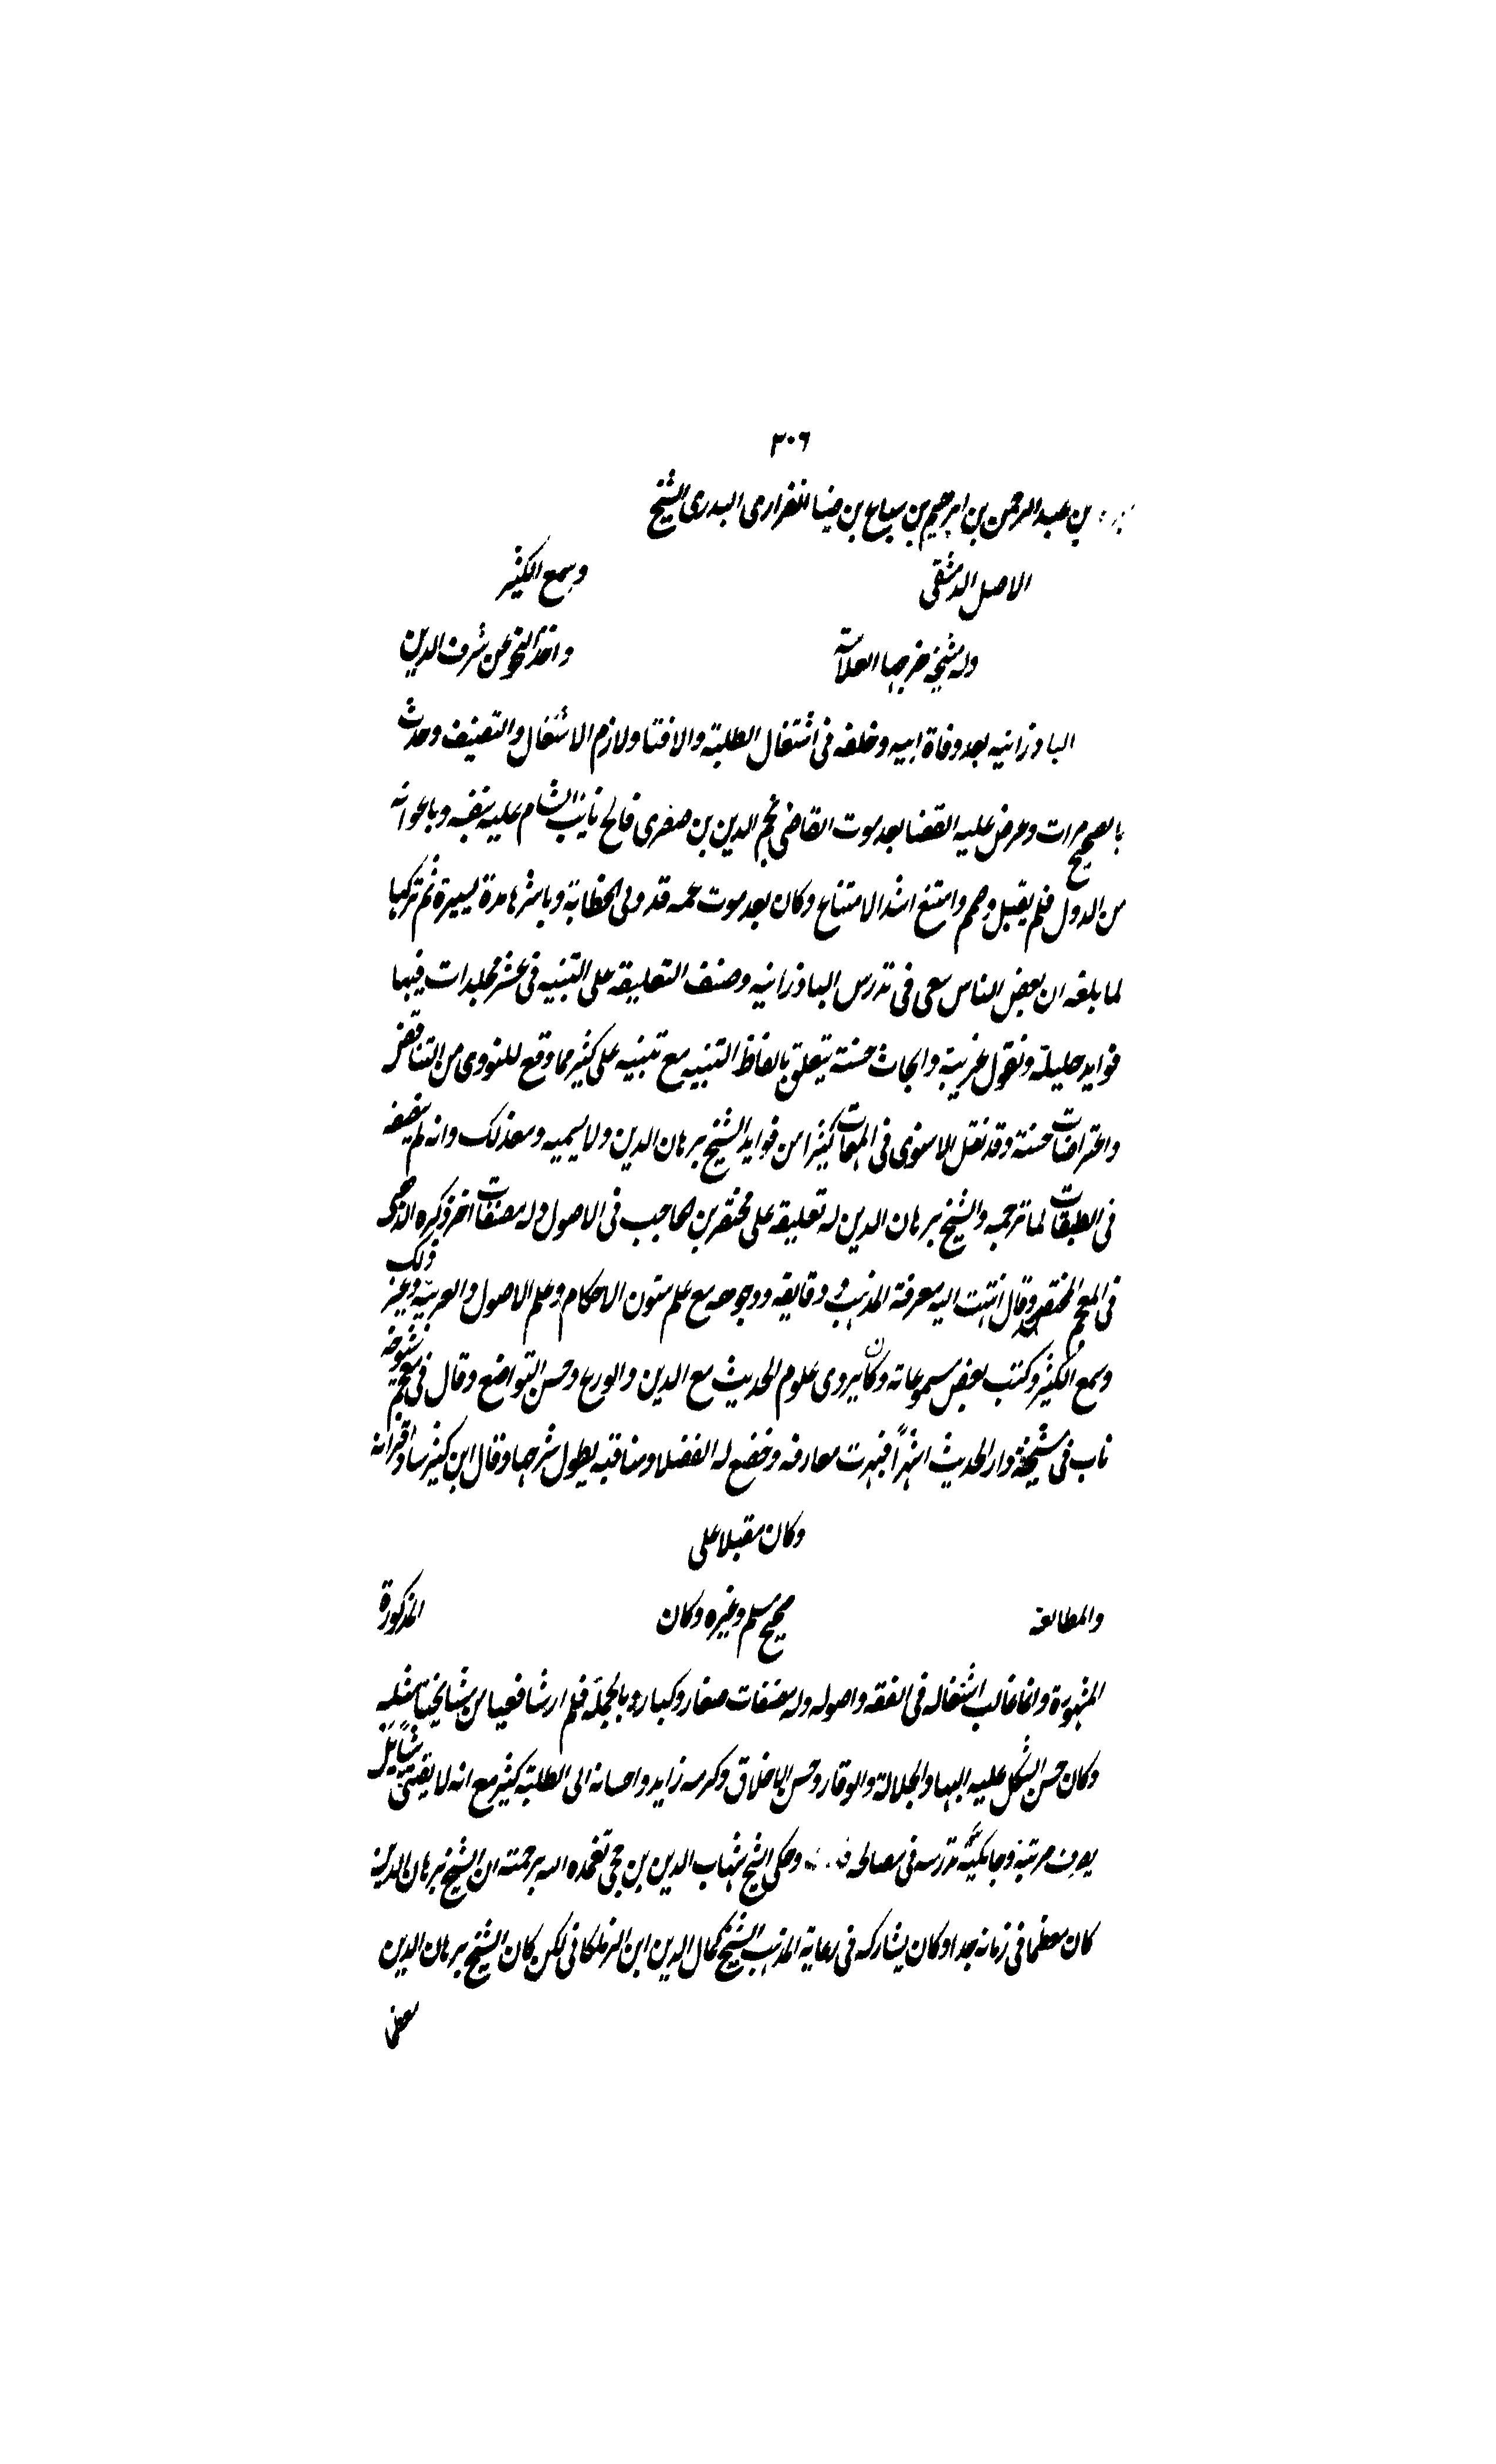 ٣٠٦
بن عبد الرحمن بن ابرهيم بن سباع بن ضيا الفزارى البدرى الشيخ
الاصل الدمشقى وسمع الكثير
وله مشيخة خرجها العلامة واخذ النحو عن شرف الدين
الباذرانيه بعد وفاة ابيه وخلفه فى اشتغال الطلبة والافتا ولازم الاشتغال والتصنيف وحدث
بالصحيح مرات وعرض عليه القضا بعد موت القاضى نجم الدين بن صصرى فالح نايب الشام عليه بنفسه وباعوانه
من الدول فلم يقبل وصمم وامتنع اشد الامتناع وكان بعد موت عمه قد ولى الخطابة وباشرها مدة يسيرة ثم تركها
لما بلغه ان بعض الناس سعى فى تدرس الباذرانيه وصنف التعليقه على التنبيه فى عشر مجلدات فيها
فوايد جليلة ونقول غريبة وابحاث حسنة يتعلق بالفاظ التنبيه مع تنبيه على كثير مما وقع للنووى من التناقض
واعتراضات حسنة وقد نقل الاسنوى فى المهمات كثيرا من فوايد الشيخ برهان الدين ولا يسميه ومع ذلك وانه لم ينصفه
فى الطبقات لما ترجمه والشيخ برهان الدين له تعليقه على مختصر بن الحاجب فى الاصول وله مصنفات اخر ذكره الذهبى
فى المعجم المختصر وقال انتهت اليه معرفة المذهب ودقايقه ووجوهه مع علم متون الاحكام وعلم الاصول والعربية وغير ذلك
وسمع الكثير وكتب بعض مسموعاته وكان يروى علوم الحديث مع الدين والورع وحسن التواضع وقال فى معجم شيوخه
ناب فى مشيخة دار الحديث اشهرا فبهرت معارفه وخضع له الفضلا ومناقبه يطول شرحها وقال ابن كثير ساد اقرانه
وكان مقبلا على
والمطالعة صحيح مسلم وغيره وكان المذكورة
المشهورة وانما غالب اشتغاله فى الفقه واصوله وله مصنفات صغار وكبار وبالجملة فلم ار شافعيا من مشايخنا مثله
وكان حسن الشكل عليه البها والجلالة والوقار وحسن الاخلاق وكرمه زايد واحسانه الى الطلبة كثير مع انه لا يقتنى شيا بل
يصرف مرتبه وجامكية مدرسه فى مصالحه وحكى الشيخ شهاب الدين بن حجى تغمده الله برحمته ان الشيخ برهان الدين
كان معظما فى زمانه جدا وكان يشاركه فى رعاية المذهب الشيخ كمال الدين ابن الزملكانى لكن كان الشيخ برهان الدين
معظما